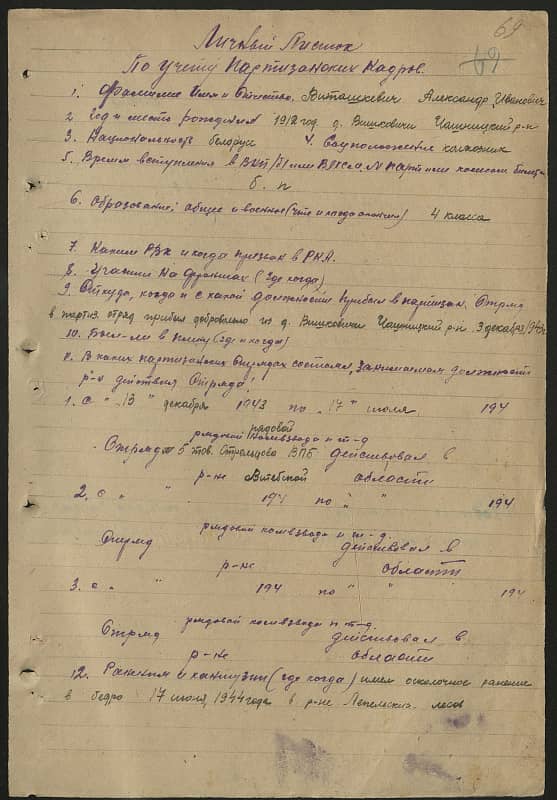 69
69
Личный Листок
По учету партизанских кадров.
1. Фамилие Имя и Отчество. Виташкевич Александр Иванович
2 Год и место рождения 1912 год д. Вишковичи Чашницкий р-н
3. Национальность белорус 4. Соцположение колхозник
5. Время вступления в ВКП/б/ или ВЛКСМ. № парт или комсом билета
б. п
6. Образование: общее и военное (что и когда окончил) 4 класса
7. Каким РВК и когда призван в РККА.
8. Участник на фронтах (где когда)
9. Откуда, когда и с какой должности прибыл в партизан. Отряд
в партиз. отряд прибыл добровольно из д. Вишковичи Чашницкий р-н. декабря 1943
10. Был-ли в плену (где и когда)
11. В каких партизанских отрядах состоял, занимаемая должность
р-н действия Отряда:
1. с " 13 " декабря 1943 по " 17 " июля 194
рядовой
рядовой комвзвода и т-д
Отряд 5 тов. ВПБ действовал в
р-не Витебской области
2. с " " 194 по " " 194
рядовой комвзвода и т-д.
Отряд действовал в
р-не области
3. с " " 194 по " " 194
рядовой комвзвода и т-д.
Отряд действовал в
р-не области
12. Ранения и контузии (где когда) имею осколочное ранение
в бедро 17 июня 1944 года в р-не Лепельских лесов